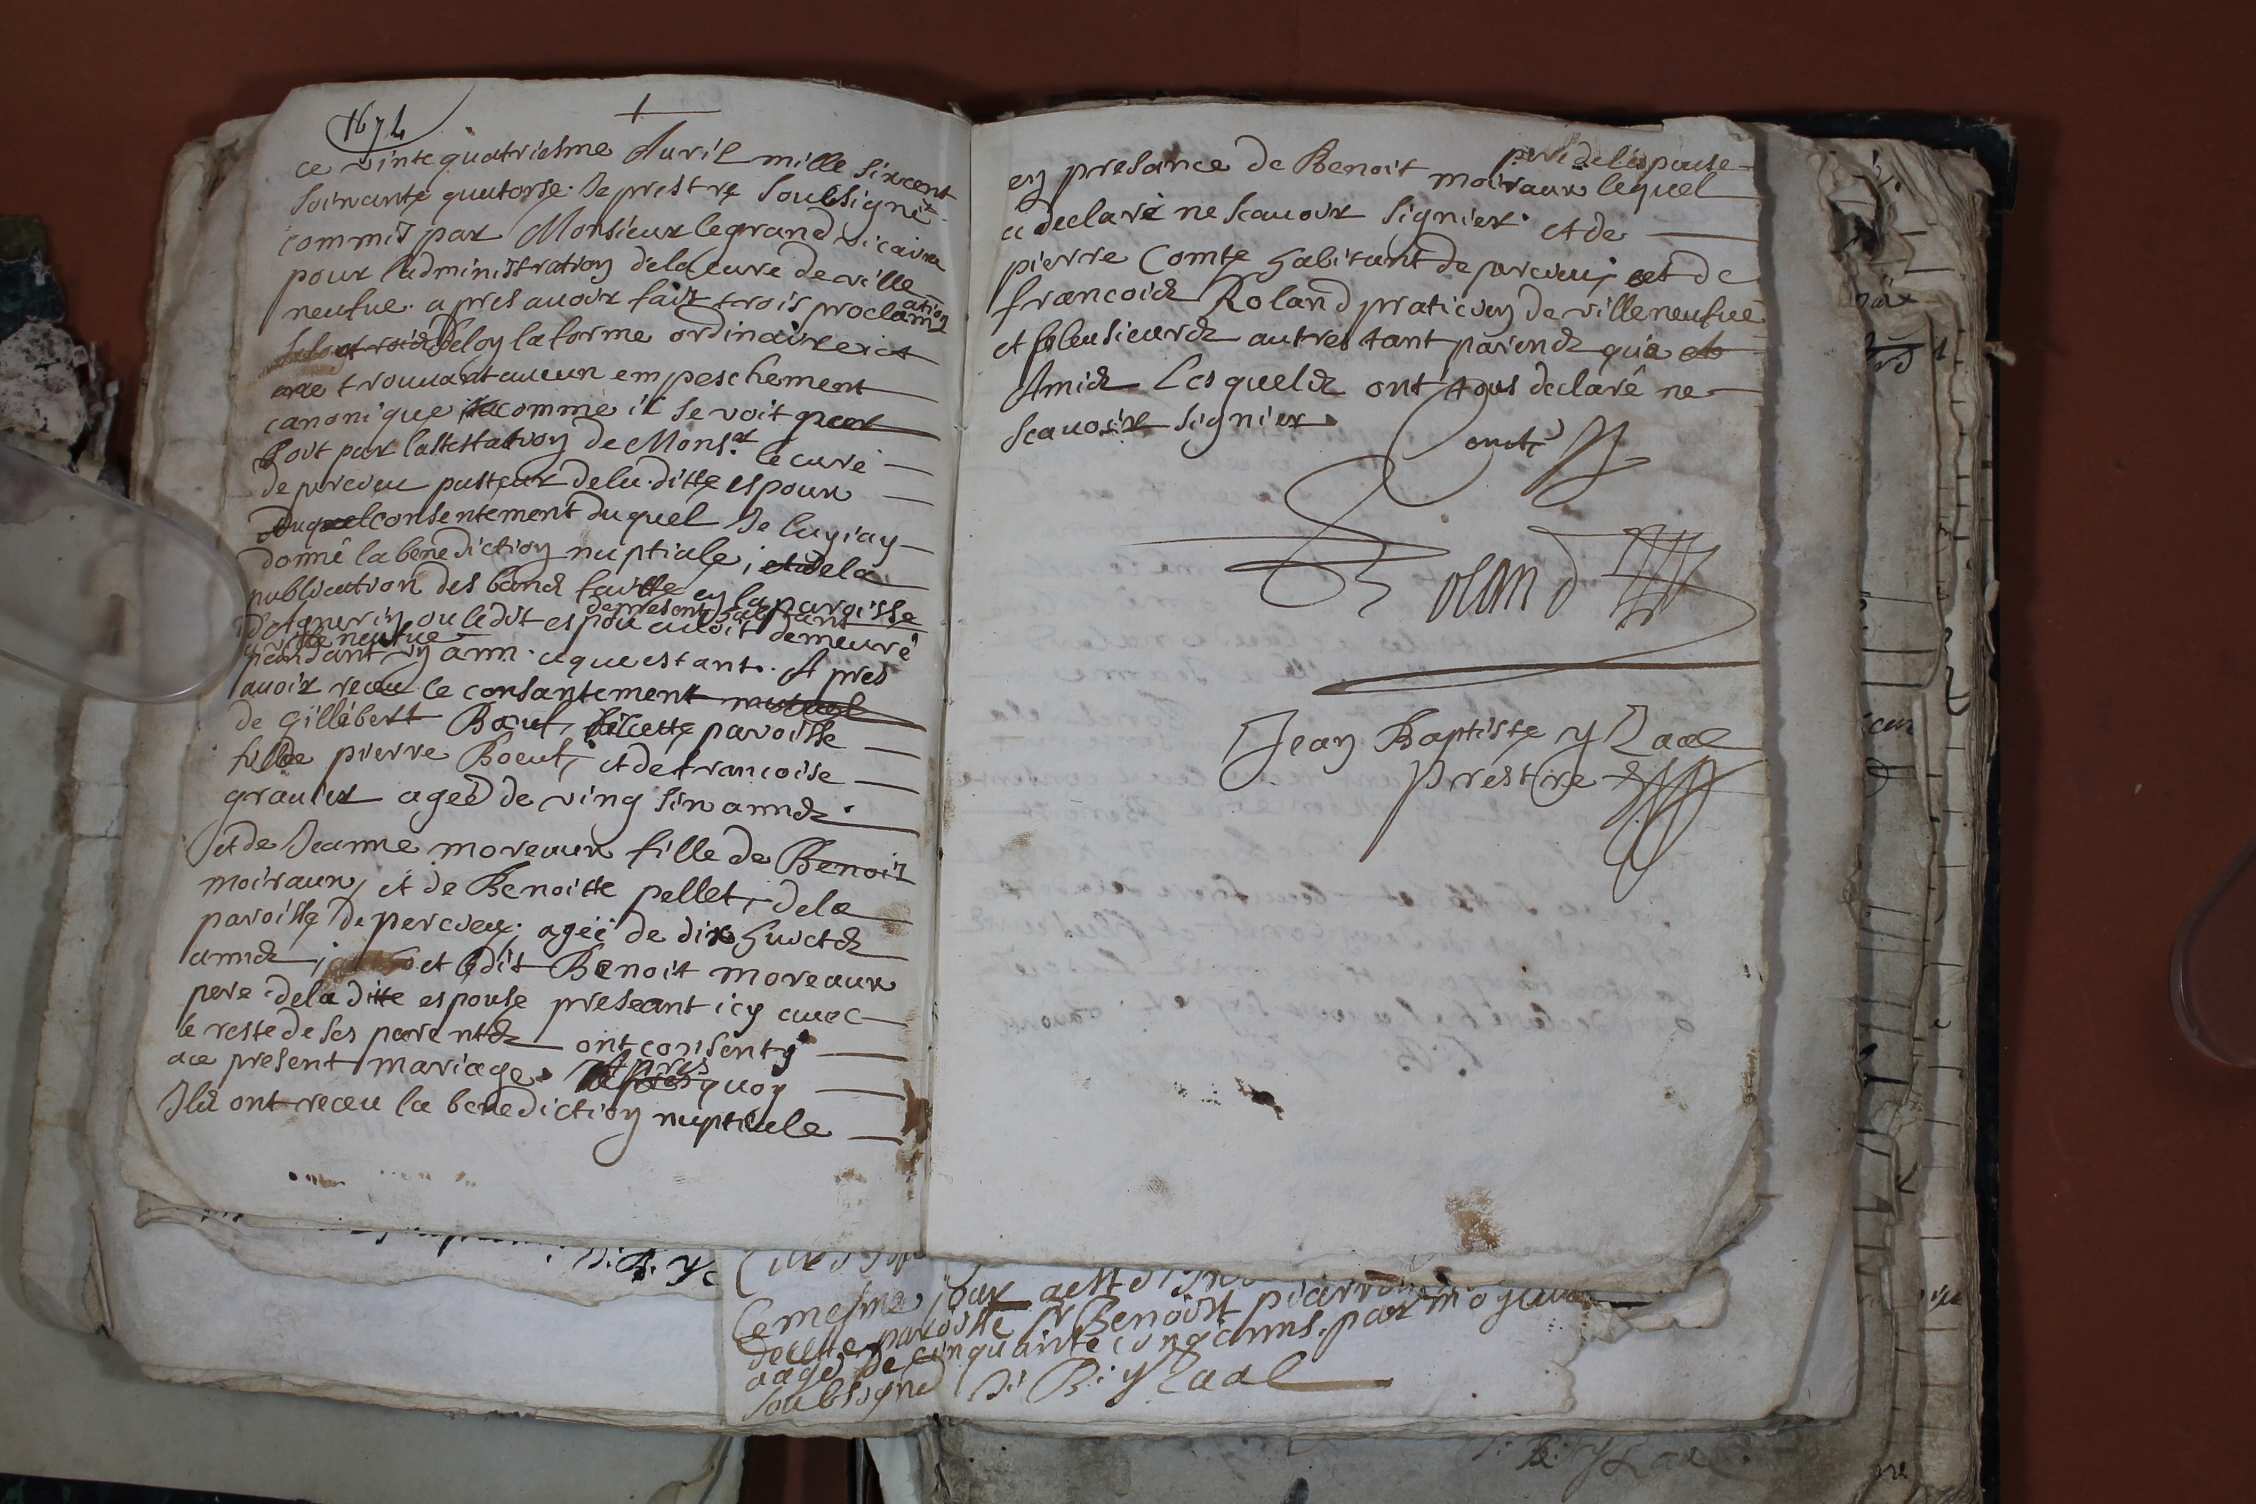 1674
ce vinte quatriesme Auril mille sixcent
soixante quatorse. Je prestre soubsigné
commis par Monsieur le grand vicaire
pour l'administration de la cure de ville
neufue. apres auoir fait trois proclam
ation
selon la forme ordinaire et
ne trouuant aucun empeschement
canonique comme il se voit
soit par lattestation de Monsr le curé
de percieu pasteur de la ditte espouse
consentement duquel Je luy iay
donné la benediction nuptiale, et de la
publication des bans faitte en la paroisse
de present habitant
d'Agnerin ou ledit espou auoit demeuré
a ville neufue
pandant un ann. aquestant. Apres
auoir receu le consantement mutuel
de gillebert Boeuf, de cette paroisse
fil de pierre Boeuf, et de francoise
grauier ageé de ving six annés.
et de Jeanne moreaux fille de Benoit
moiraux, et de Benoitte pellet, de la
paroisse de percieu. ageé de dix huicts
annés, et ledit Benoit moreaux
pere de la ditte espouse preseant icy auec
le reste de ses parents ont consenty
a ce present mariage. Apres quoy
Ils ont receu la benediction nuptiale
pere de lespouse
en presance de Benoit moiraux lequel
a declaré ne scauoir signier. et de
pierre Comte habitant de percieu, et de
francois Roland praticien de villeneufue
et plusieurs autres tant parents que
Amis Lesquels ont tous declaré ne
scauoir signier
Comte
Roland
Jean Baptiste yLaal
prestre
Ce mesme jour a esté
de cette paroisse Sr Benoist pierr
aagé de cinquante cinq anns. par moy
soubsigné J. B. yLaal